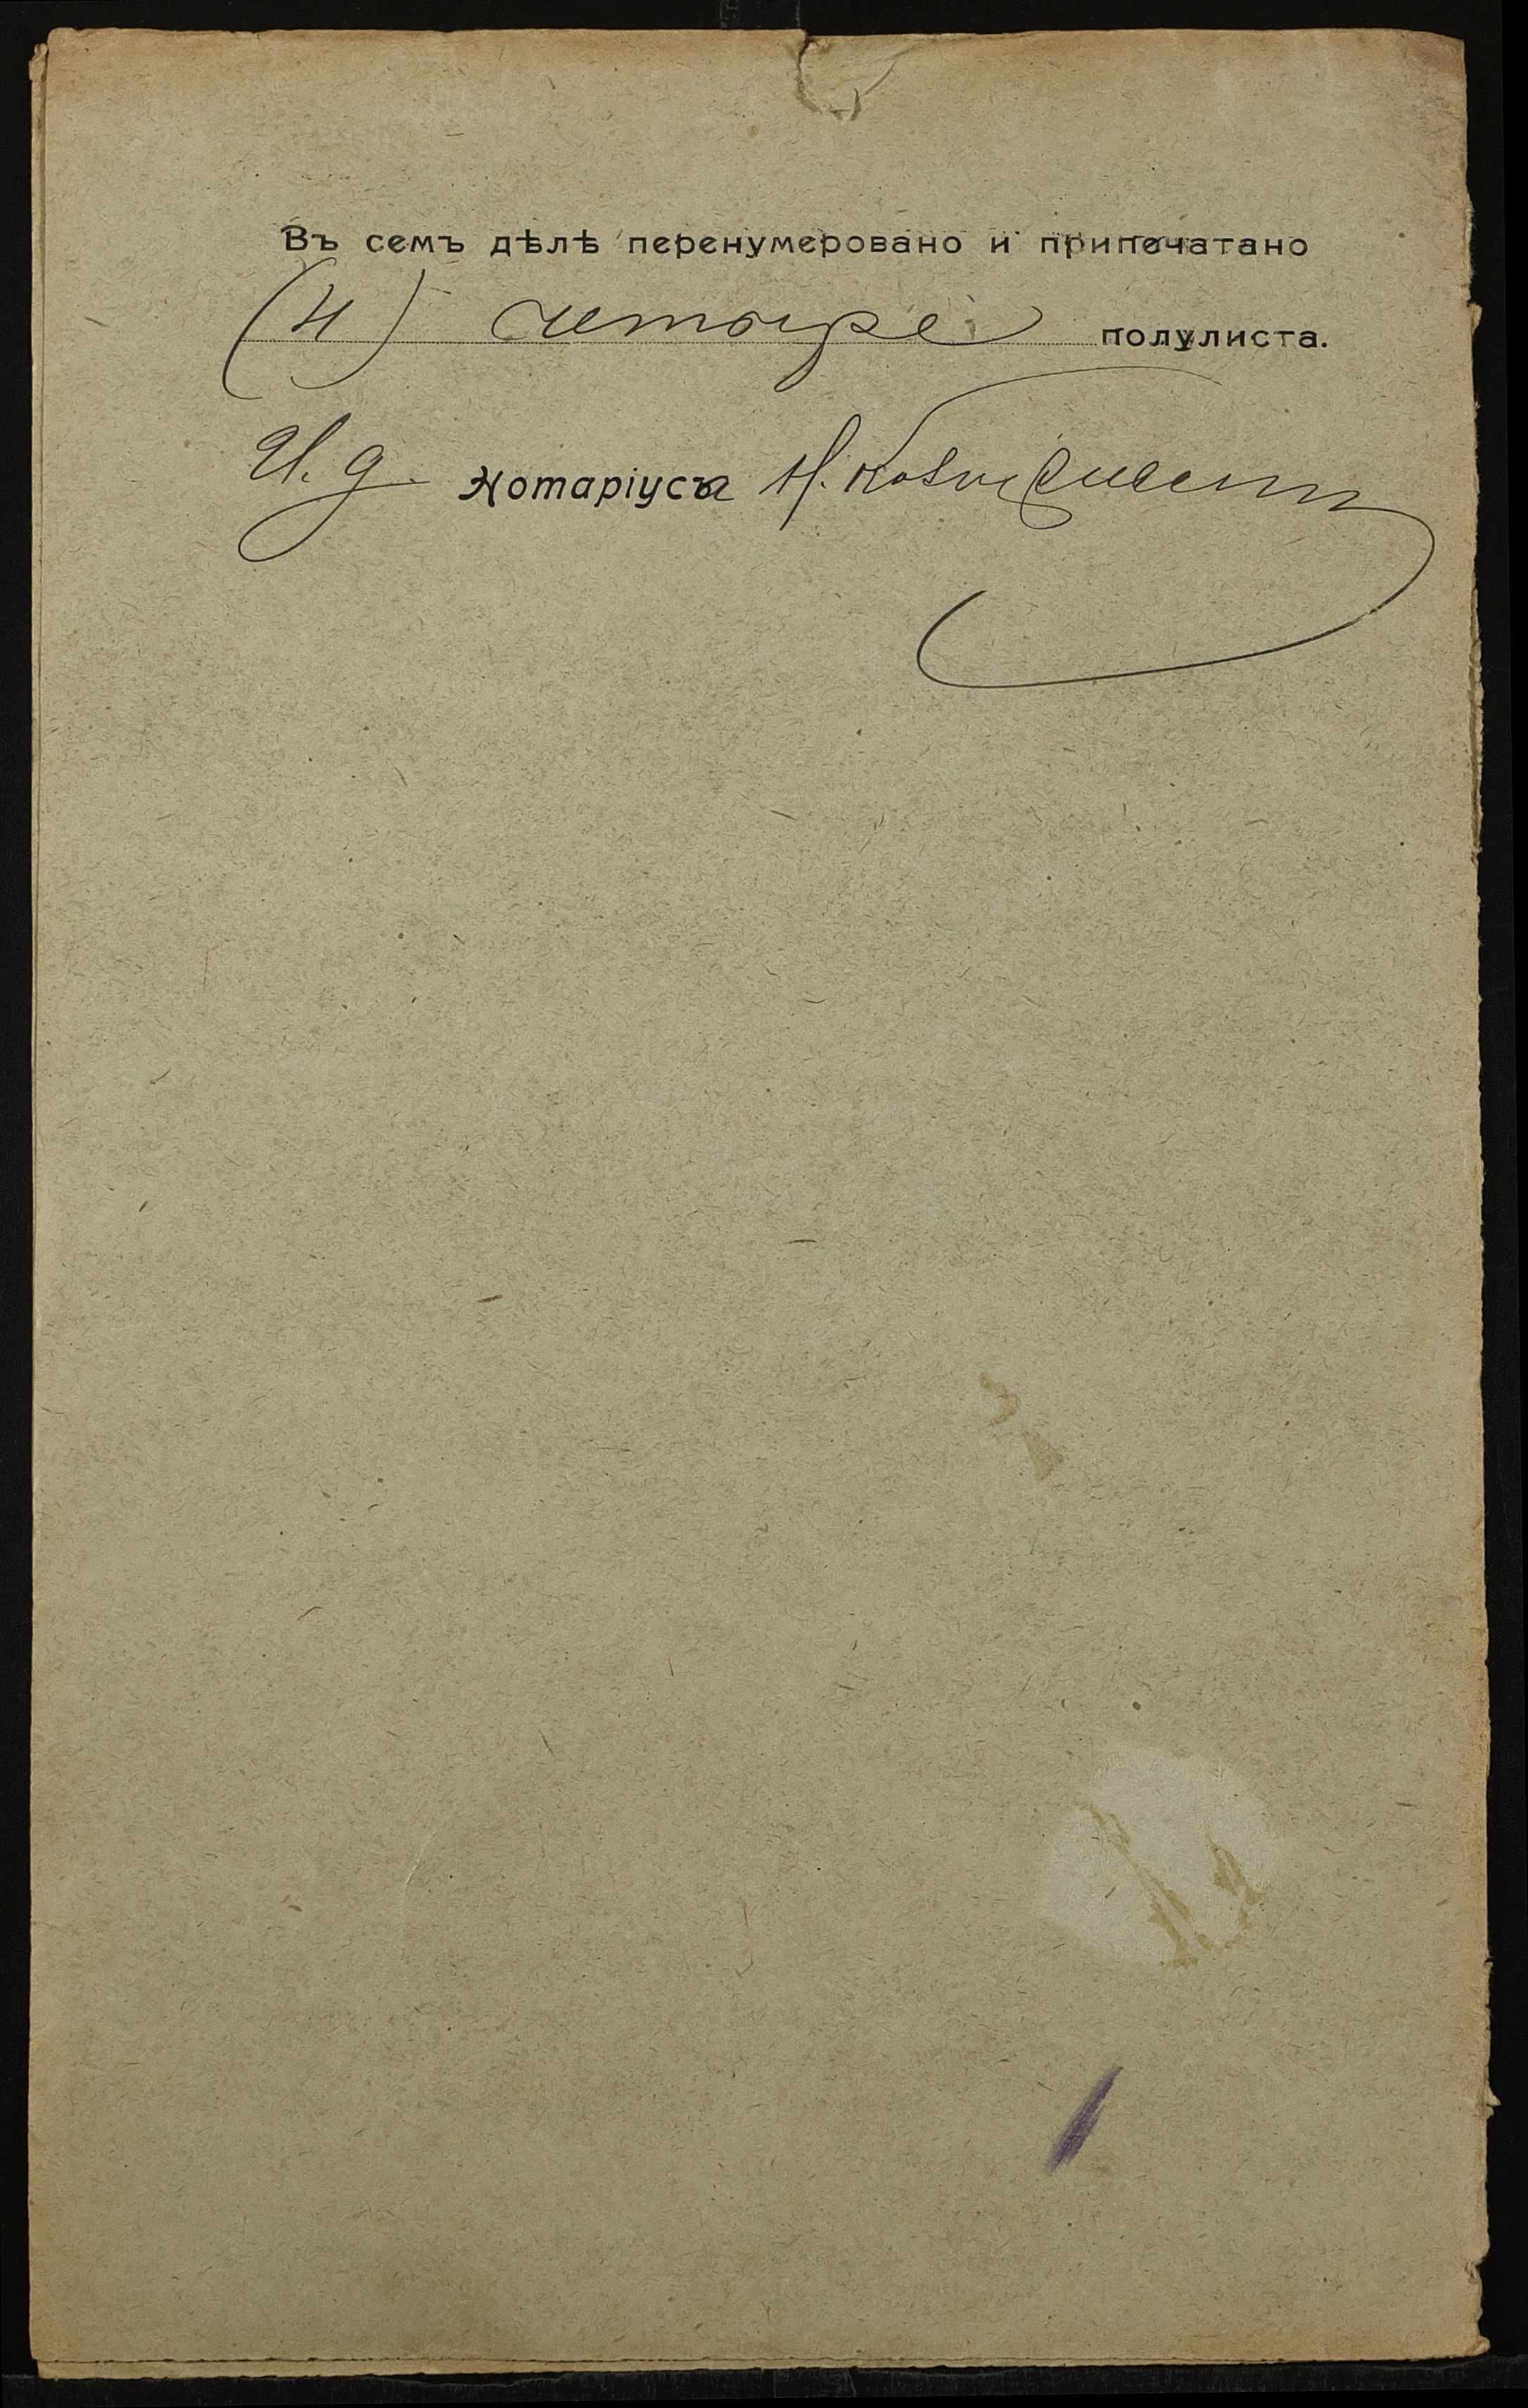 Въ семъ дѣлѣ перенумеровано и припечатано
(4) четыре полулиста.
И. д. Нотаріуса Н.